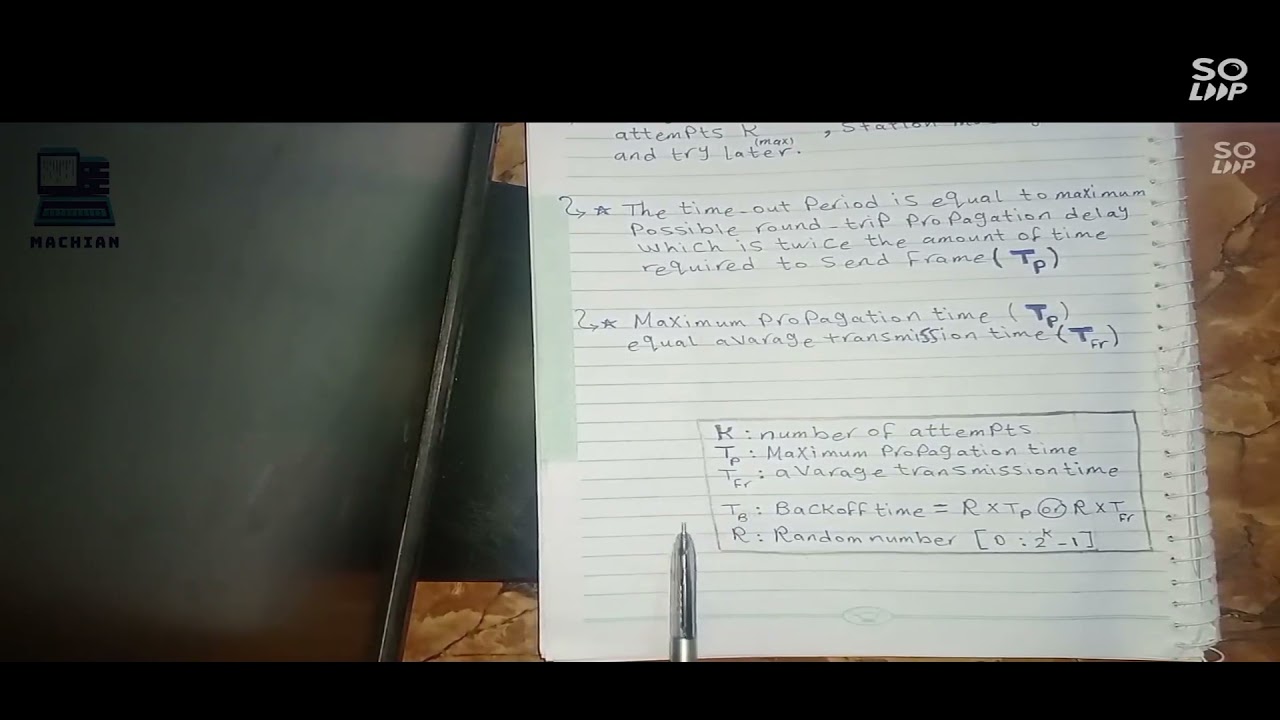 SO
LOOP
SO
LOOP
MACHIAN
attempts K(max), station
and try later.
★ The time-out Period is equal to maximum
Possible round-trip Propagation delay
which is twice the amount of time
required to Send Frame (Tp)
★ Maximum Propagation time (Tp)
equal avarage transmission time (TFr)
K: number of attempts
Tp: Maximum Propagation time
TFr: avarage transmission time
TB: Backoff time = R X Tp or R X TFr
R: Random number [0 : 2^K - 1]